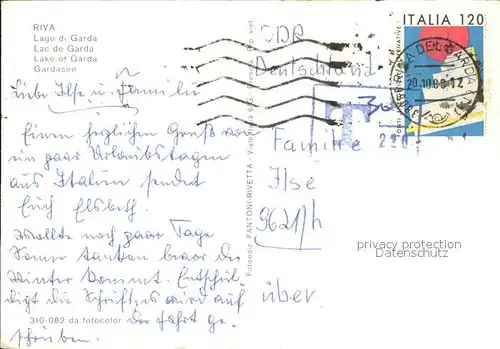 RIVA
Lago di Garda
Lac de Garda
Lake of Garda
Gardasee
Liebe Ilse u. Familie
Einen herzlichen Gruß von
ein paar Urlaubstagen
aus Italien sendet
Euch Elsbeth.
Wollte noch paar Tage
Sonne tanken bevor der
Winter kommt. Entschul
digt die Schrift, es wird auf
der Fahrt ge
schrieben.
310-082 da fotocolor
Fotoediz. FANTONI-RIVETTA
DDR
Deutschland
Familie
Ilse
9621/h
über
T
290
ITALIA 120
RIVA DEL GARDA
20.10.8
privacy protection
Datenschutz